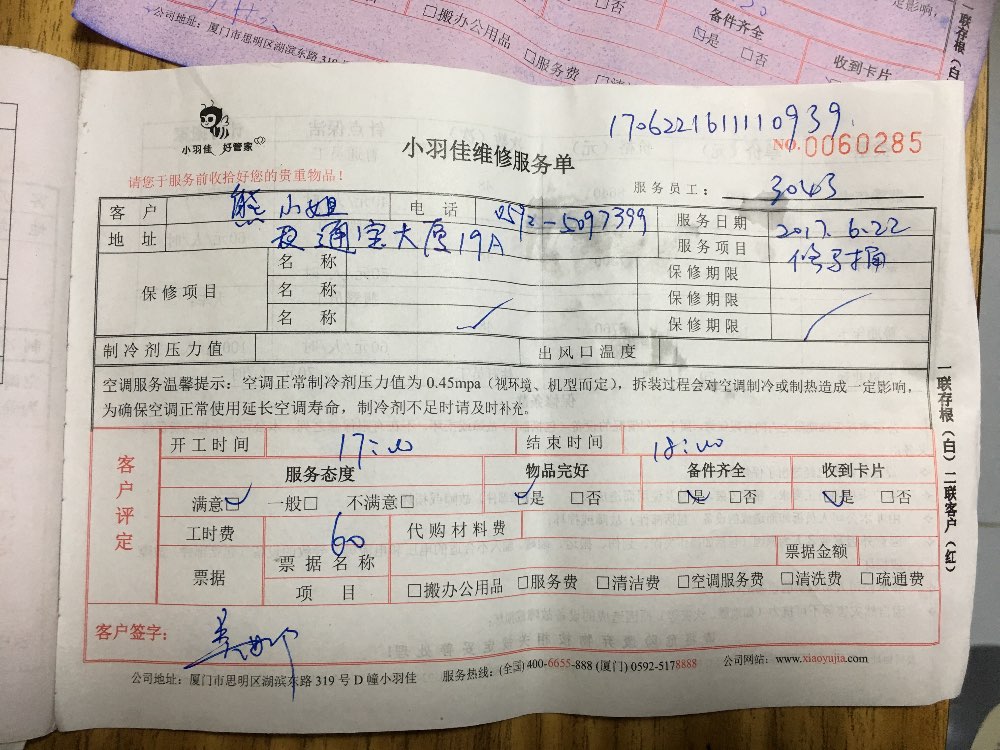 公司地址：厦门市思明区湖滨东路 319
□搬办公用品
□服务费
□否
备件齐全
□是 □否
收到卡片
定影响，
一联存根（白）
小羽佳 好管家
1706221611110939
小羽佳维修服务单
NO.0060285
请您于服务前收拾好您的贵重物品！
服务员工： 3043
客 户 熊小姐 电 话 0592-5097399 服务日期 2017.6.22
地 址 通宝大厦19A 服务项目
保修项目
名 称 保修期限
名 称 保修期限
名 称 保修期限
制冷剂压力值 出风口温度
空调服务温馨提示：空调正常制冷剂压力值为 0.45mpa（视环境、机型而定），拆装过程会对空调制冷或制热造成一定影响，
为确保空调正常使用延长空调寿命，制冷剂不足时请及时补充。
客户评定
开工时间 17:00 结束时间 18:00
服务态度 物品完好 备件齐全 收到卡片
满意□ 一般□ 不满意□ □是 □否 □是 □否 □是 □否
工时费 60 代购材料费
票据 票据名称 票据金额
项 目 □搬办公用品 □服务费 □清洁费 □空调服务费 □清洗费 □疏通费
客户签字：
公司地址：厦门市思明区湖滨东路 319 号 D 幢小羽佳 服务热线：(全国) 400-6655-888 (厦门) 0592-5178888 公司网站：www.xiaoyujia.com
一联存根（白）二联客户（红）